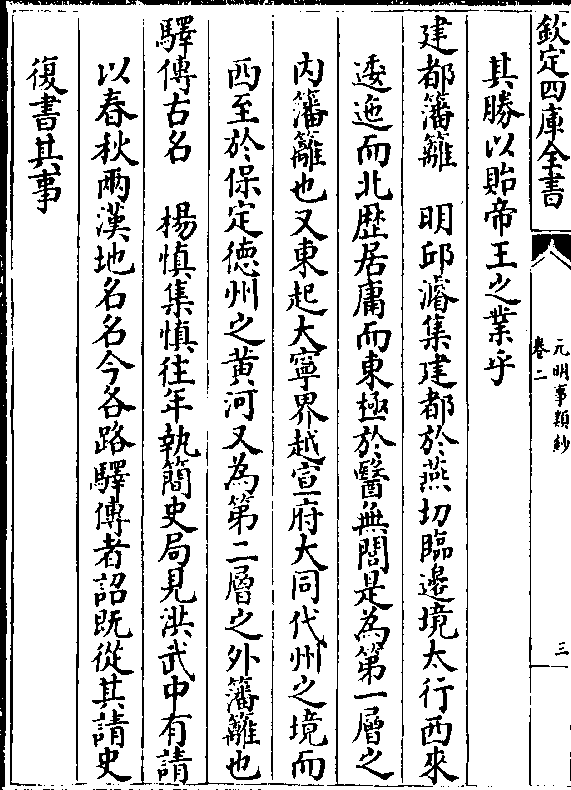 欽定四庫全書
元明事類鈔
卷二
三
其勝以貽帝王之業乎
建都籓籬　明邱濬集建都於燕切臨邊境太行西來
逶迤而北歷居庸而東極於醫無閭是為第一層之
内籓籬也又東起大寧界越宣府大同代州之境而
西至於保定德州之黄河又為第二層之外籓籬也
驛傳古名　楊慎集慎往年執簡史局見洪武中有請
以春秋兩漢地名名今各路驛傳者詔既從其請史
復書其事